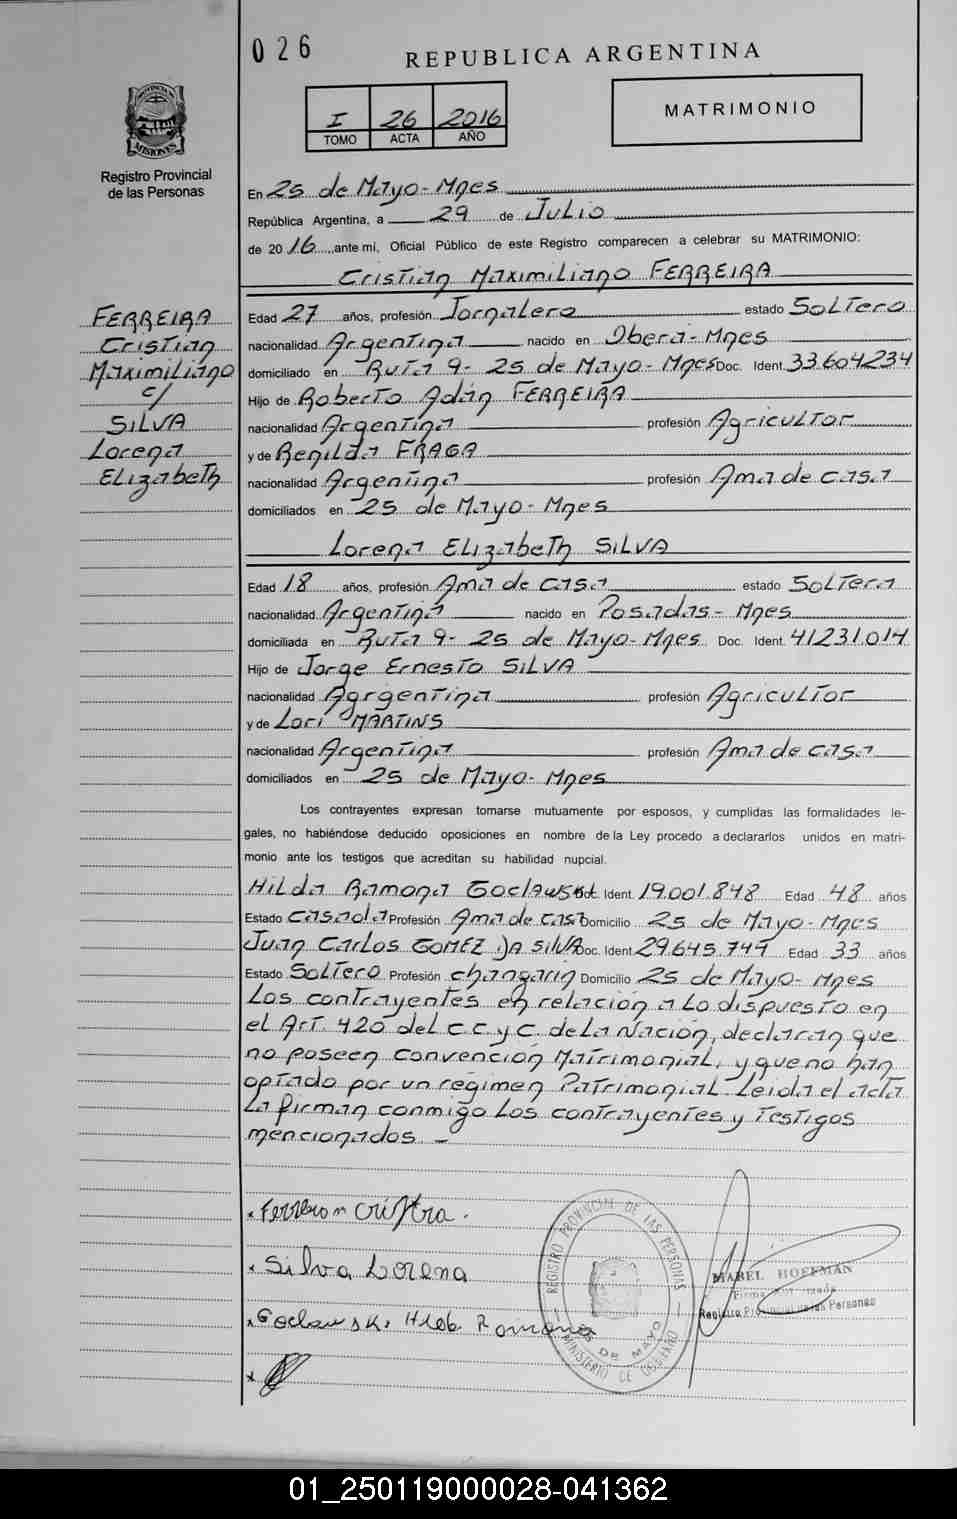 026
REPUBLICA ARGENTINA
I 26 2016
TOMO ACTA AÑO
MATRIMONIO
PROVINCIA DE MISIONES
Registro Provincial
de las Personas
En 25 de Mayo - Mnes
República Argentina, a 29 de Julio
de 2016, ante mi, Oficial Público de este Registro comparecen a celebrar su MATRIMONIO:
Cristian Maximiliano FERREIRA
FERREIRA
Cristian
Maximiliano
c/
SILVA
Lorena
Elizabeth
Edad 27 años, profesión Jornalero estado Soltero
nacionalidad Argentina nacido en Oberá - Mnes
domiciliado en Ruta 9 - 25 de Mayo - Mnes Doc. Ident. 33.604234
Hijo de Roberto Adán FERREIRA
nacionalidad Argentina profesión Agricultor
y de Renilda FRAGA
nacionalidad Argentina profesión Ama de casa
domiciliados en 25 de Mayo - Mnes
Lorena Elizabeth SILVA
Edad 18 años, profesión Ama de casa estado Soltera
nacionalidad Argentina nacido en Posadas - Mnes
domiciliada en Ruta 9 - 25 de Mayo - Mnes Doc. Ident. 41231.014
Hijo de Jorge Ernesto SILVA
nacionalidad Agrgentina profesión Agricultor
y de Lori MARTINS
nacionalidad Argentina profesión Ama de casa
domiciliados en 25 de Mayo - Mnes
Los contrayentes expresan tomarse mutuamente por esposos, y cumplidas las formalidades le-
gales, no habiéndose deducido oposiciones en nombre de la Ley procedo a declararlos unidos en matri-
monio ante los testigos que acreditan su habilidad nupcial.
Hilda Ramona Goclawski Doc. Ident. 19.001.848 Edad 48 años
Estado casada Profesión Ama de casa Domicilio 25 de Mayo - Mnes
Juan Carlos GOMEZ DA SILVA Doc. Ident. 29.645.749 Edad 33 años
Estado Soltero Profesión changarin Domicilio 25 de Mayo - Mnes
Los contrayentes en relación a lo dispuesto en
el Art. 420 del C.C. y C. de la Nación, declaran que
no poseen convención Matrimonial, y que no han
optado por un regimen Patrimonial. Leida el acta
la firman conmigo los contrayentes y testigos
mencionados -
x Ferreira Cristia.
x Silva Lorena
x Goclawski Hilda Ramona
x
REGISTRO PROVINCIAL DE LAS PERSONAS
25 DE MAYO
MINISTERIO DE GOBIERNO
MABEL HOFFMAN
Registro Provincial de las Personas
01_250119000028-041362